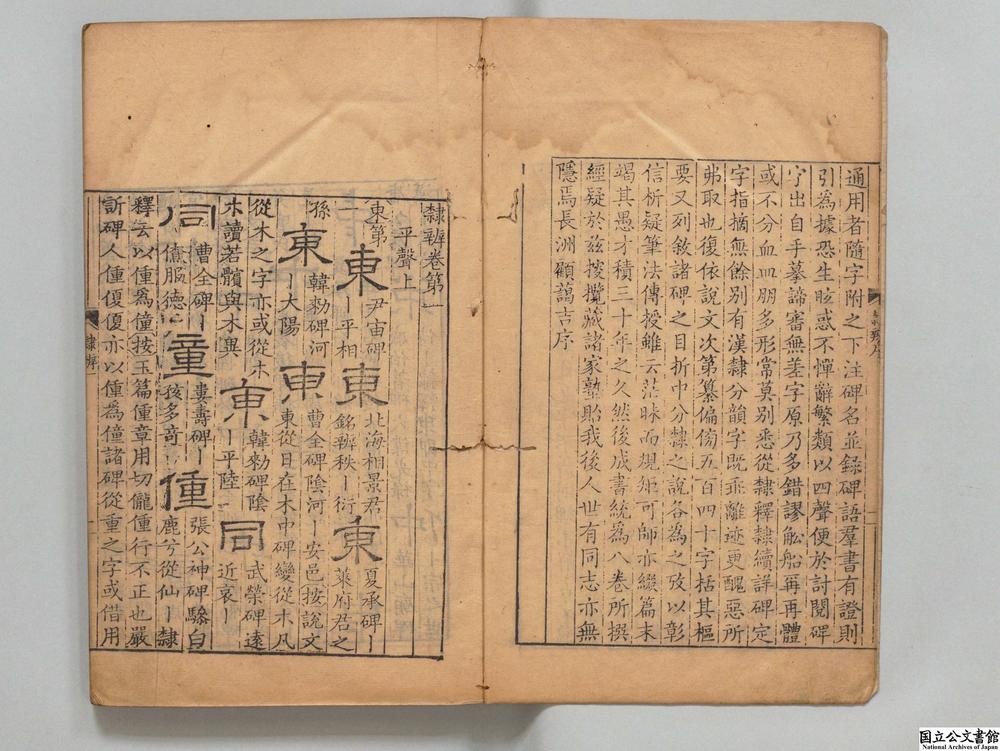 通用者隨字附之下注碑名並録碑語羣書有證則
引為據恐生眩惑不憚辭繁類以四聲便於討閱碑
字出自手摹諦審無差字原乃多錯謬舩船再再體
或不分血皿朋多形常莫別悉從隸釋隸續詳碑定
字指摘無餘別有漢隸分韻字既乖離迹更醜惡所
弗取也復依說文次第纂偏傍五百四十字括其樞
要又列敘諸碑之目折中分隸之說各為之攷以彰
信析疑筆法傳授雖云茫昧而規矩可師亦綴篇末
竭其愚才積三十年之久然後成書統為八卷所撰
經疑於兹挍攬藏諸家塾貽我後人世有同志亦無
隱焉長洲顧藹吉序
隸辨卷第一
平聲上
東第一
東 尹宙碑 丨平相 東 北海相景君銘辨秩丨衍 東 夏承碑丨萊府君之孫
東 韓勑碑河丨大陽 東 曹全碑陰河丨安邑按說文東從日在木中碑變從木凡
從木之字亦或從木
木讀若髕與木異 東 韓勑碑陰丨平陸 同 武榮碑遠近哀丨
同 曹全碑丨僚服德 董 婁壽碑丨孩多奇 僮 張公神碑驂白鹿兮從仙丨隸
釋云以僮為僮按玉篇僮章用切儱僮行不正也嚴
訢碑人僮優優亦以僮為僮諸碑從重之字或借用
隸辨
国立公文書館
National Archives of Japan